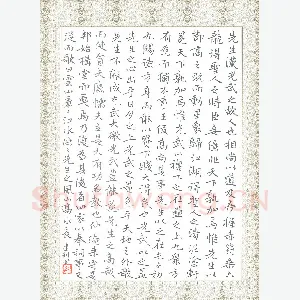 先生漢光武之故人也相尚以道及帝握赤符乘六
龍得聖人之時臣妾億兆天下孰加焉惟先生以
節高之既而動星象歸江湖得聖人之清泥塗軒
冕天下孰加焉惟光武以禮下之在蠱之上九眾方
有為而獨不事王侯高尚其事先生以之在屯之初九
陽德方亨而能以貴下賤大得民也光武以之蓋
先生之心出乎日月之上光武之量包乎天地之外微
先生不能成光武之大微光武豈能遂先生之高哉
而使貪夫廉懦夫立是大有功於名教也仲淹來守是
邦始構堂而奠焉乃復為其後者四家以奉祠事又
從而歌曰雲山蒼蒼江水泱泱先生之風山高水長